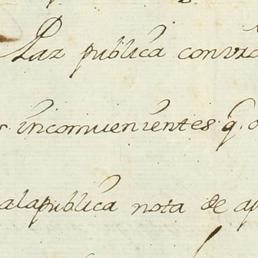 Paz publica conviz
inconuenientes q.
alapublica nota de ap